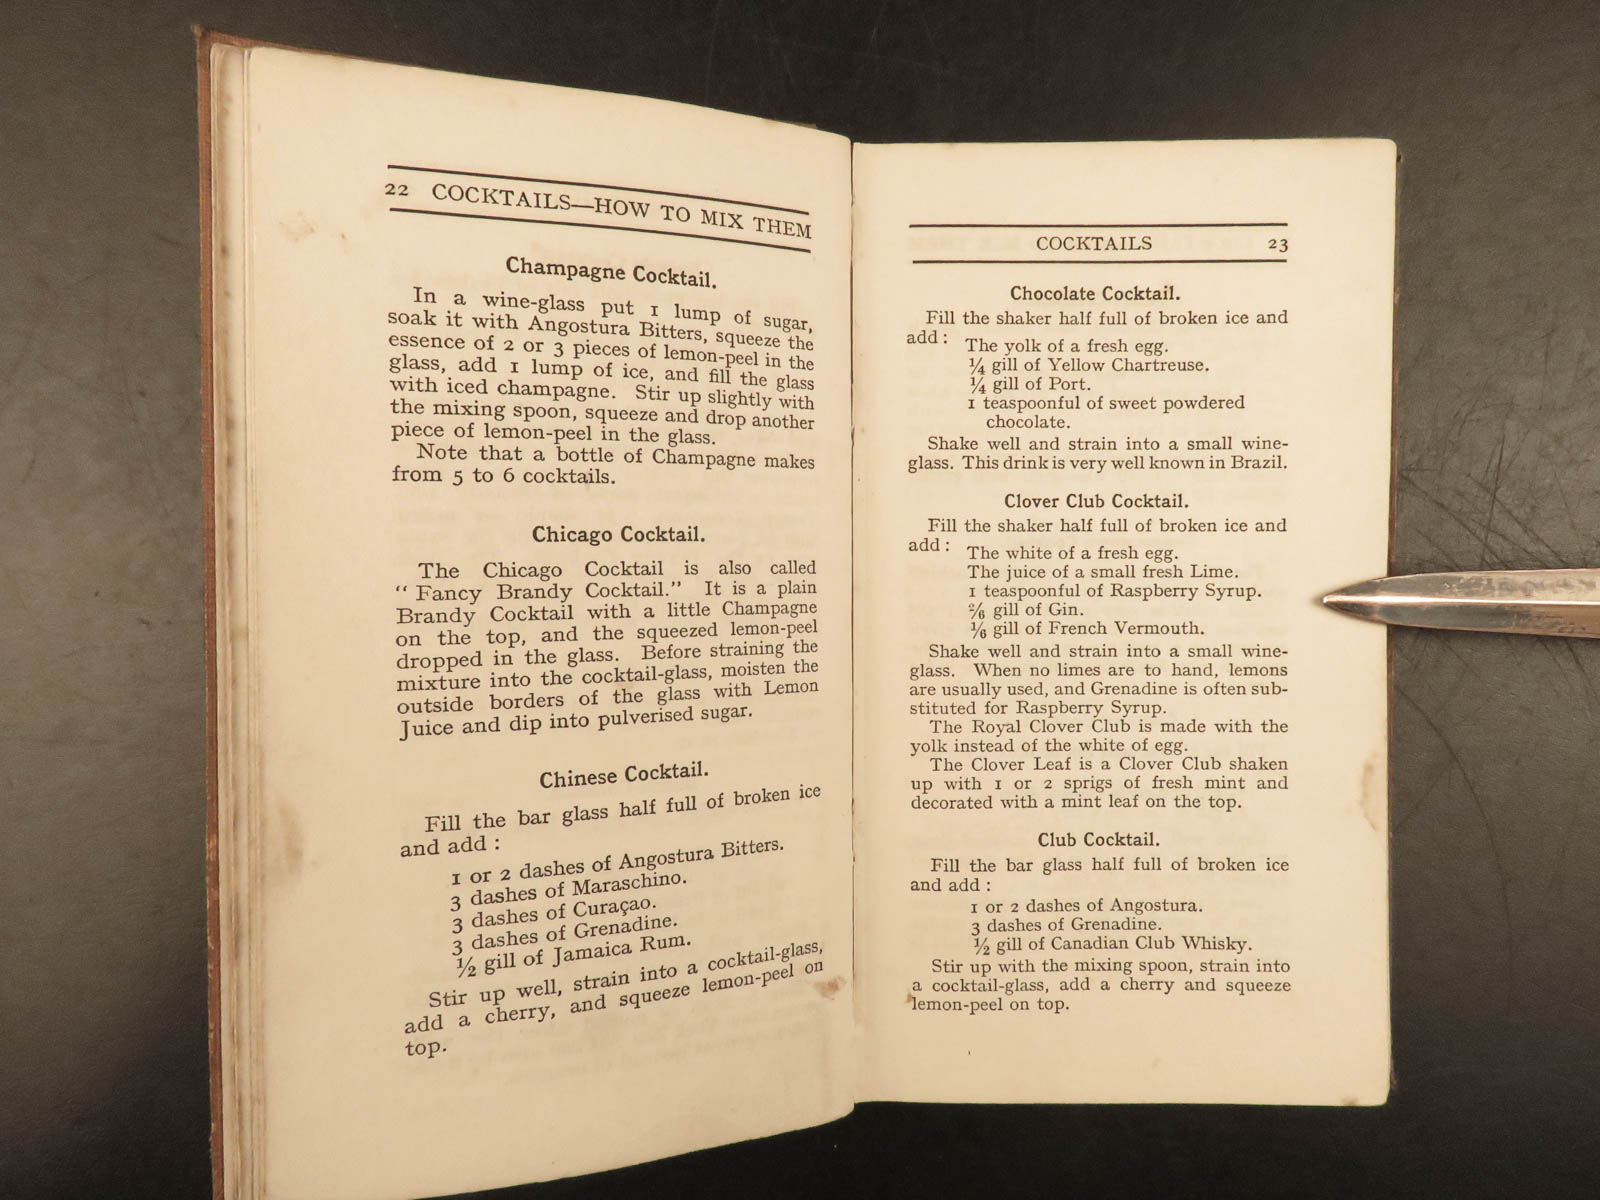 22 COCKTAILS—HOW TO MIX THEM
Champagne Cocktail.
In a wine-glass put 1 lump of sugar,
soak it with Angostura Bitters, squeeze the
essence of 2 or 3 pieces of lemon-peel in the
glass, add 1 lump of ice, and fill the glass
with iced champagne. Stir up slightly with
the mixing spoon, squeeze and drop another
piece of lemon-peel in the glass.
Note that a bottle of Champagne makes
from 5 to 6 cocktails.
Chicago Cocktail.
The Chicago Cocktail is also called
“Fancy Brandy Cocktail.” It is a plain
Brandy Cocktail with a little Champagne
on the top, and the squeezed lemon-peel
dropped in the glass. Before straining the
mixture into the cocktail-glass, moisten the
outside borders of the glass with Lemon
Juice and dip into pulverised sugar.
Chinese Cocktail.
Fill the bar glass half full of broken ice
and add :
1 or 2 dashes of Angostura Bitters.
3 dashes of Maraschino.
3 dashes of Curaçao.
3 dashes of Grenadine.
½ gill of Jamaica Rum.
Stir up well, strain into a cocktail-glass,
add a cherry, and squeeze lemon-peel on
top.
COCKTAILS 23
Chocolate Cocktail.
Fill the shaker half full of broken ice and
add :
The yolk of a fresh egg.
¼ gill of Yellow Chartreuse.
¼ gill of Port.
1 teaspoonful of sweet powdered
chocolate.
Shake well and strain into a small wine-
glass. This drink is very well known in Brazil.
Clover Club Cocktail.
Fill the shaker half full of broken ice and
add :
The white of a fresh egg.
The juice of a small fresh Lime.
1 teaspoonful of Raspberry Syrup.
2/6 gill of Gin.
1/6 gill of French Vermouth.
Shake well and strain into a small wine-
glass. When no limes are to hand, lemons
are usually used, and Grenadine is often sub-
stituted for Raspberry Syrup.
The Royal Clover Club is made with the
yolk instead of the white of egg.
The Clover Leaf is a Clover Club shaken
up with 1 or 2 sprigs of fresh mint and
decorated with a mint leaf on the top.
Club Cocktail.
Fill the bar glass half full of broken ice
and add :
1 or 2 dashes of Angostura.
3 dashes of Grenadine.
½ gill of Canadian Club Whisky.
Stir up with the mixing spoon, strain into
a cocktail-glass, add a cherry and squeeze
lemon-peel on top.